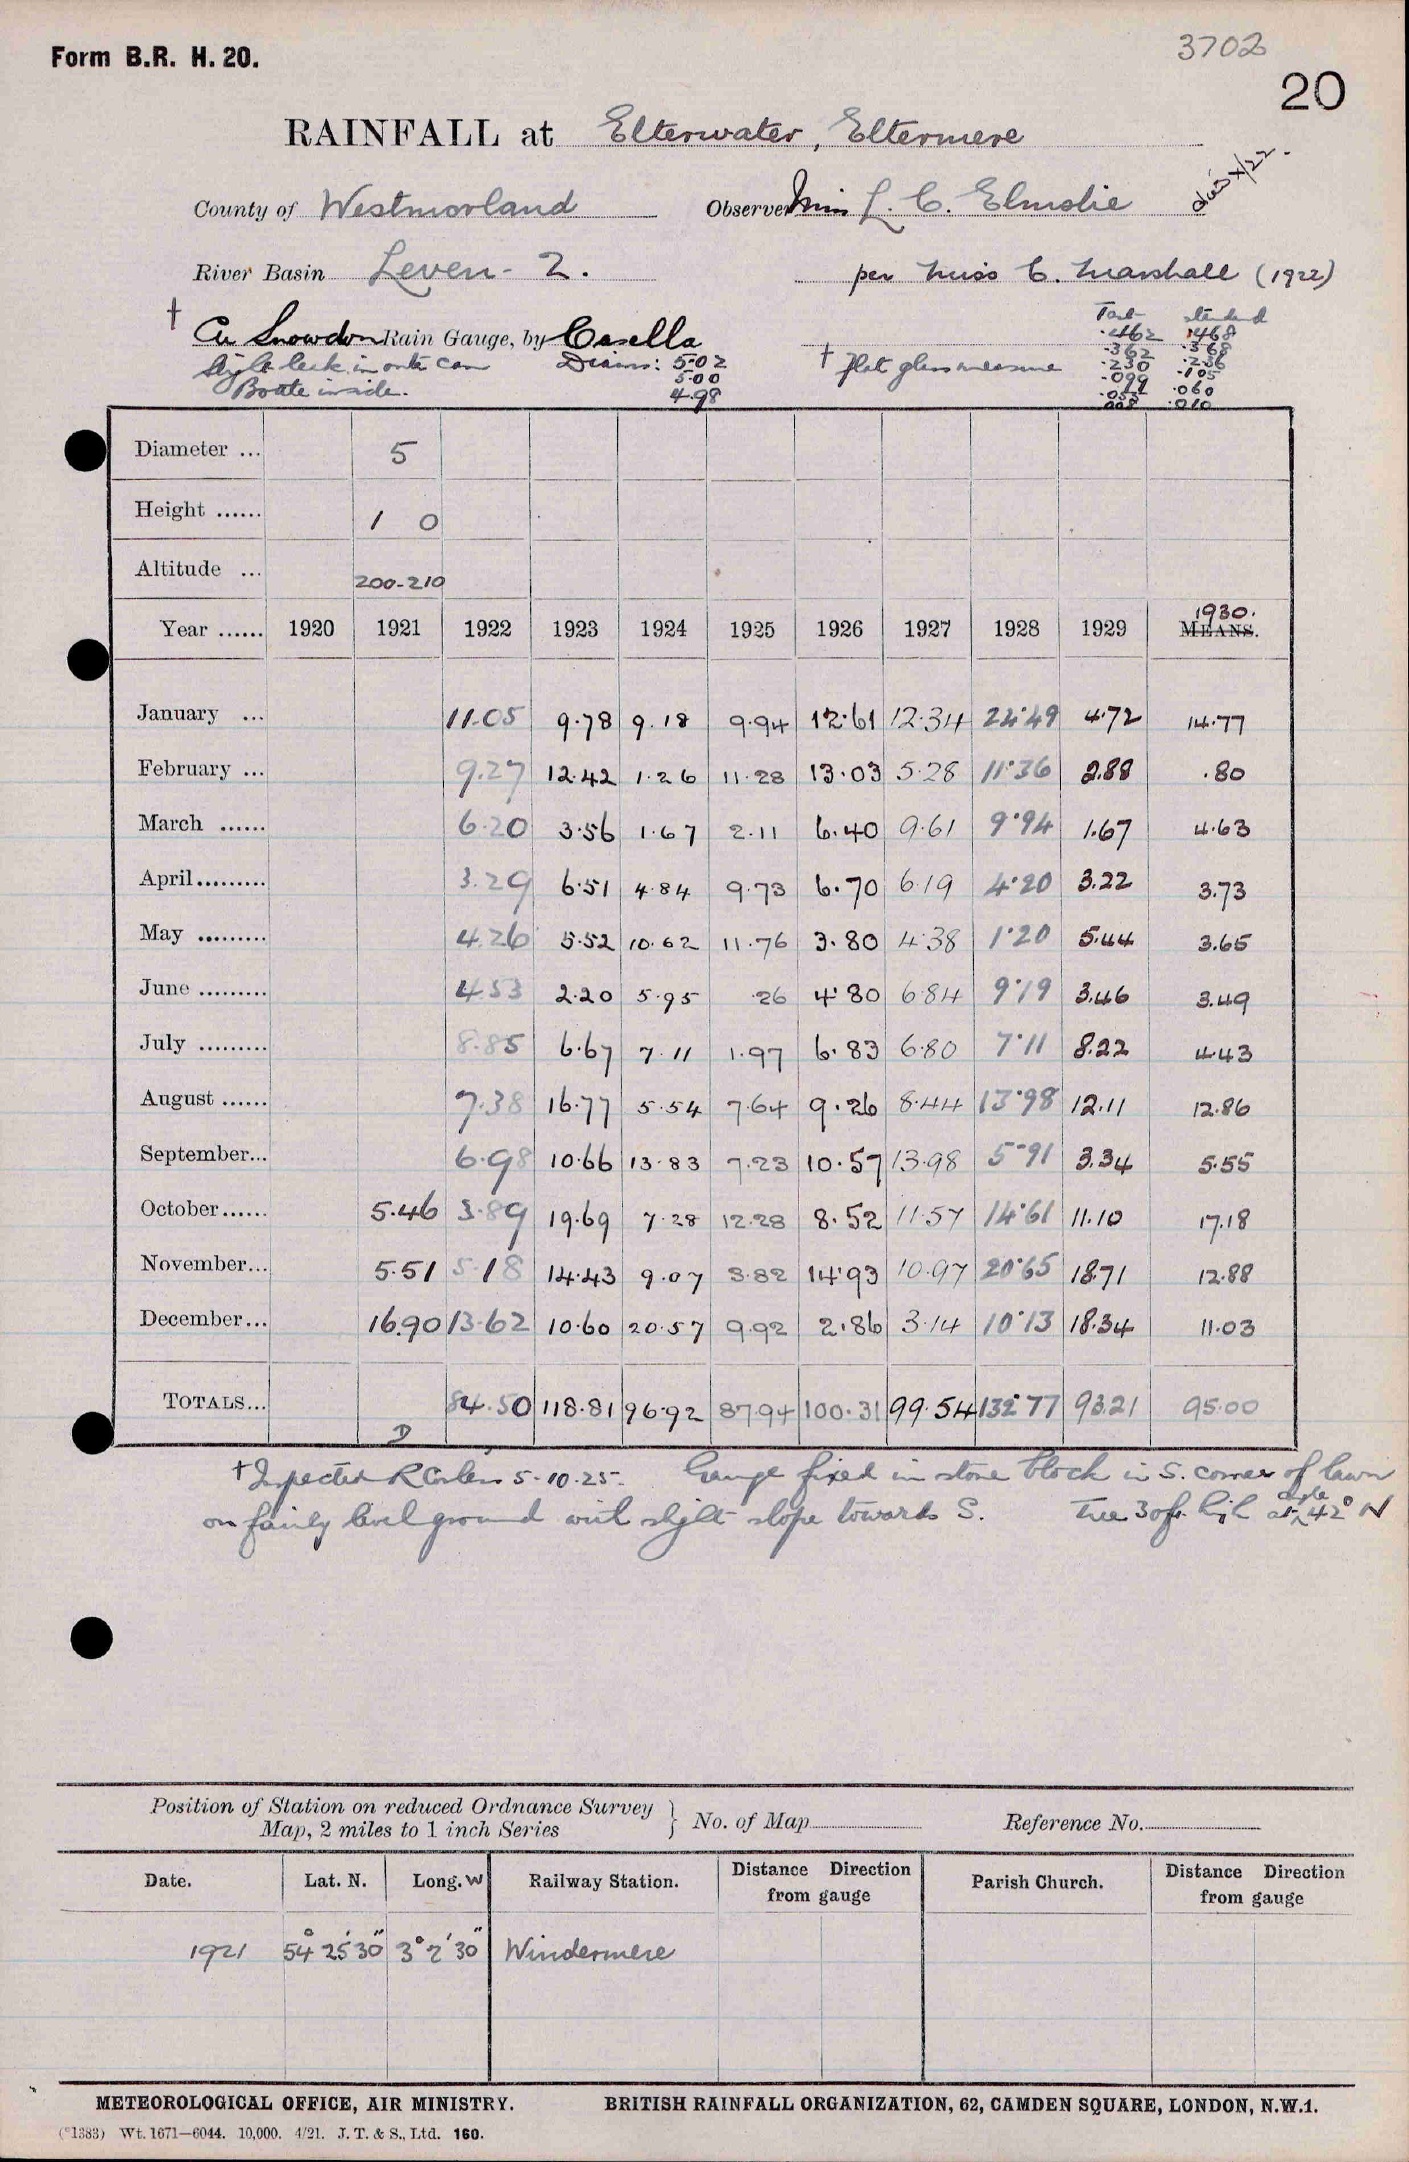 Form B.R. H. 20.
3702
20
RAINFALL at Elterwater, Eltermere
died X/22.
County of Westmorland Observer Miss L. C. Elmslie
River Basin Leven - 2. per Miss C. Marshall (1922)
† Cu Snowdon Rain Gauge, by Casella
Slight leak in outer can Diams: 5.02
Bottle inside. 5.00
4.98
† flat glass measure
Test Standard
.462 .468
.362 .368
.230 .236
.099 .105
.053 .060
.008 .010
Diameter ... 5
Height ...... 1 0
Altitude ... 200-210
Year ...... 1920 1921 1922 1923 1924 1925 1926 1927 1928 1929 1930. MEANS.
January ... 11.05 9.78 9.18 9.94 12.61 12.34 22.49 4.72 14.77
February ... 9.27 12.42 1.26 11.28 13.03 5.28 11.36 2.88 .80
March ...... 6.20 3.56 1.67 2.11 6.40 9.61 9.94 1.67 4.63
April......... 3.29 6.51 4.84 9.73 6.70 6.19 4.20 3.22 3.73
May ......... 4.26 5.52 10.62 11.76 3.80 4.38 1.20 5.44 3.65
June ......... 4.53 2.20 5.95 .26 4.80 6.84 9.19 3.46 3.49
July ......... 8.85 6.67 7.11 1.97 6.83 6.80 7.11 8.22 4.43
August ...... 7.38 16.77 5.54 7.64 9.26 8.44 13.98 12.11 12.86
September... 6.98 10.66 13.83 7.23 10.57 13.98 5.91 3.34 5.55
October...... 5.46 3.89 19.69 7.28 12.28 8.52 11.57 14.61 11.10 17.18
November... 5.51 5.18 14.43 9.07 3.82 14.93 10.97 20.65 18.71 12.88
December... 16.90 13.62 10.60 20.57 9.92 2.86 3.14 10.13 18.34 11.03
TOTALS... 84.50 118.81 96.92 87.94 100.31 99.54 132.77 93.21 95.00
D
† Inspected R Corless 5-10-25. Gauge fixed in stone block in S. corner of lawn
on fairly level ground with slight slope towards S. Tree 30ft. high at angle 42° N
Position of Station on reduced Ordnance Survey
Map, 2 miles to 1 inch Series } No. of Map Reference No.
Date. Lat. N. Long. W Railway Station. Distance Direction from gauge Parish Church. Distance Direction from gauge
1921 54° 25' 30" 3° 2' 30" Windermere
METEOROLOGICAL OFFICE, AIR MINISTRY. BRITISH RAINFALL ORGANIZATION, 62, CAMDEN SQUARE, LONDON, N.W.1.
(*1383) Wt. 1671—6044. 10,000. 4/21. J. T. & S., Ltd. 160.